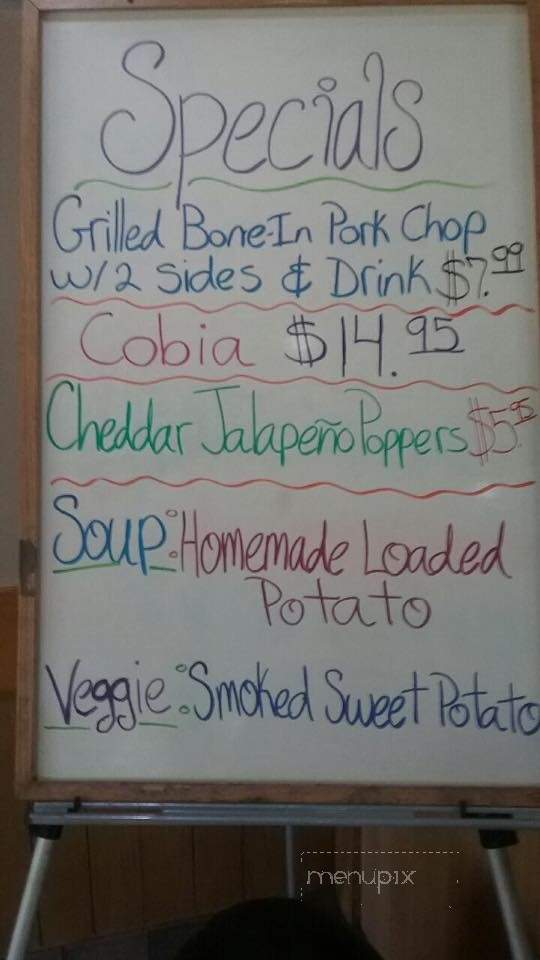 Specials
Grilled Bone-In Pork Chop
w/2 sides & Drink $7.99
Cobia $14.95
Cheddar Jalapeño Poppers $5.95
Soup: Homemade Loaded
Potato
Veggie: Smoked Sweet Potato
menupix